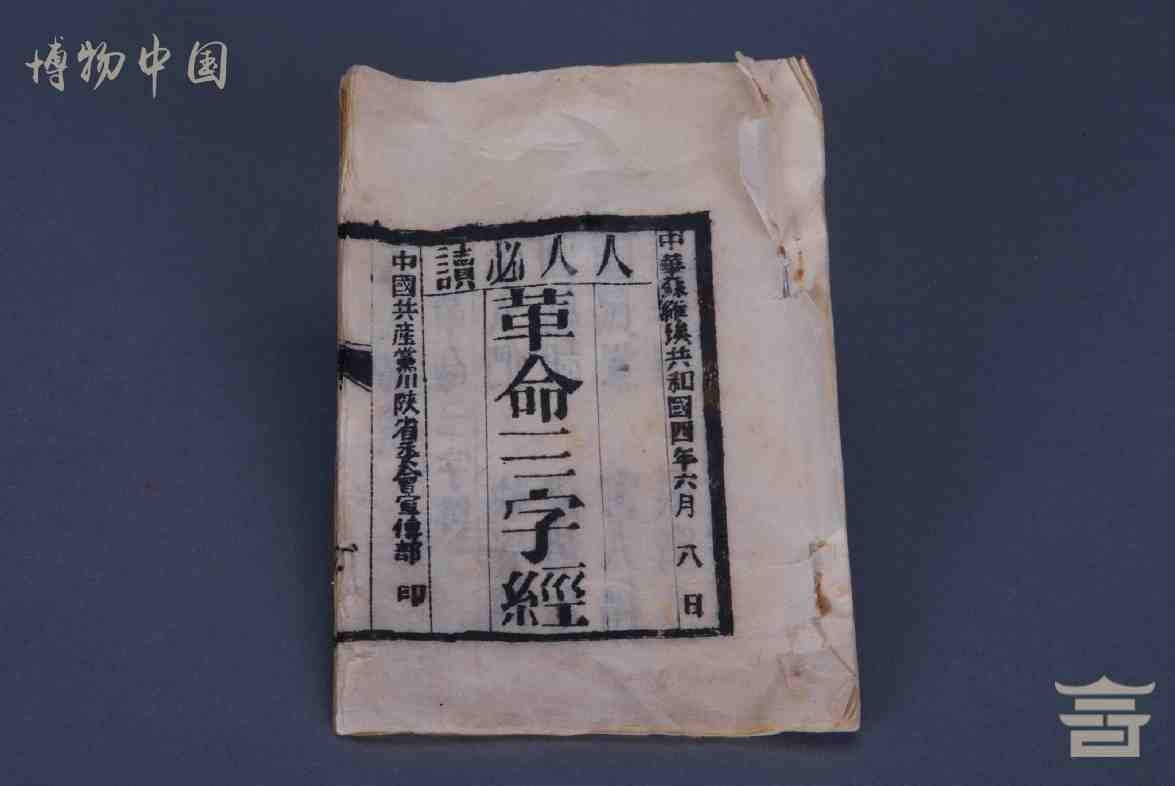 博物中国
中華蘇維埃共和國四年六月八日
人人必讀
革命三字經
中國共産黨川陝省委會宣傳部印